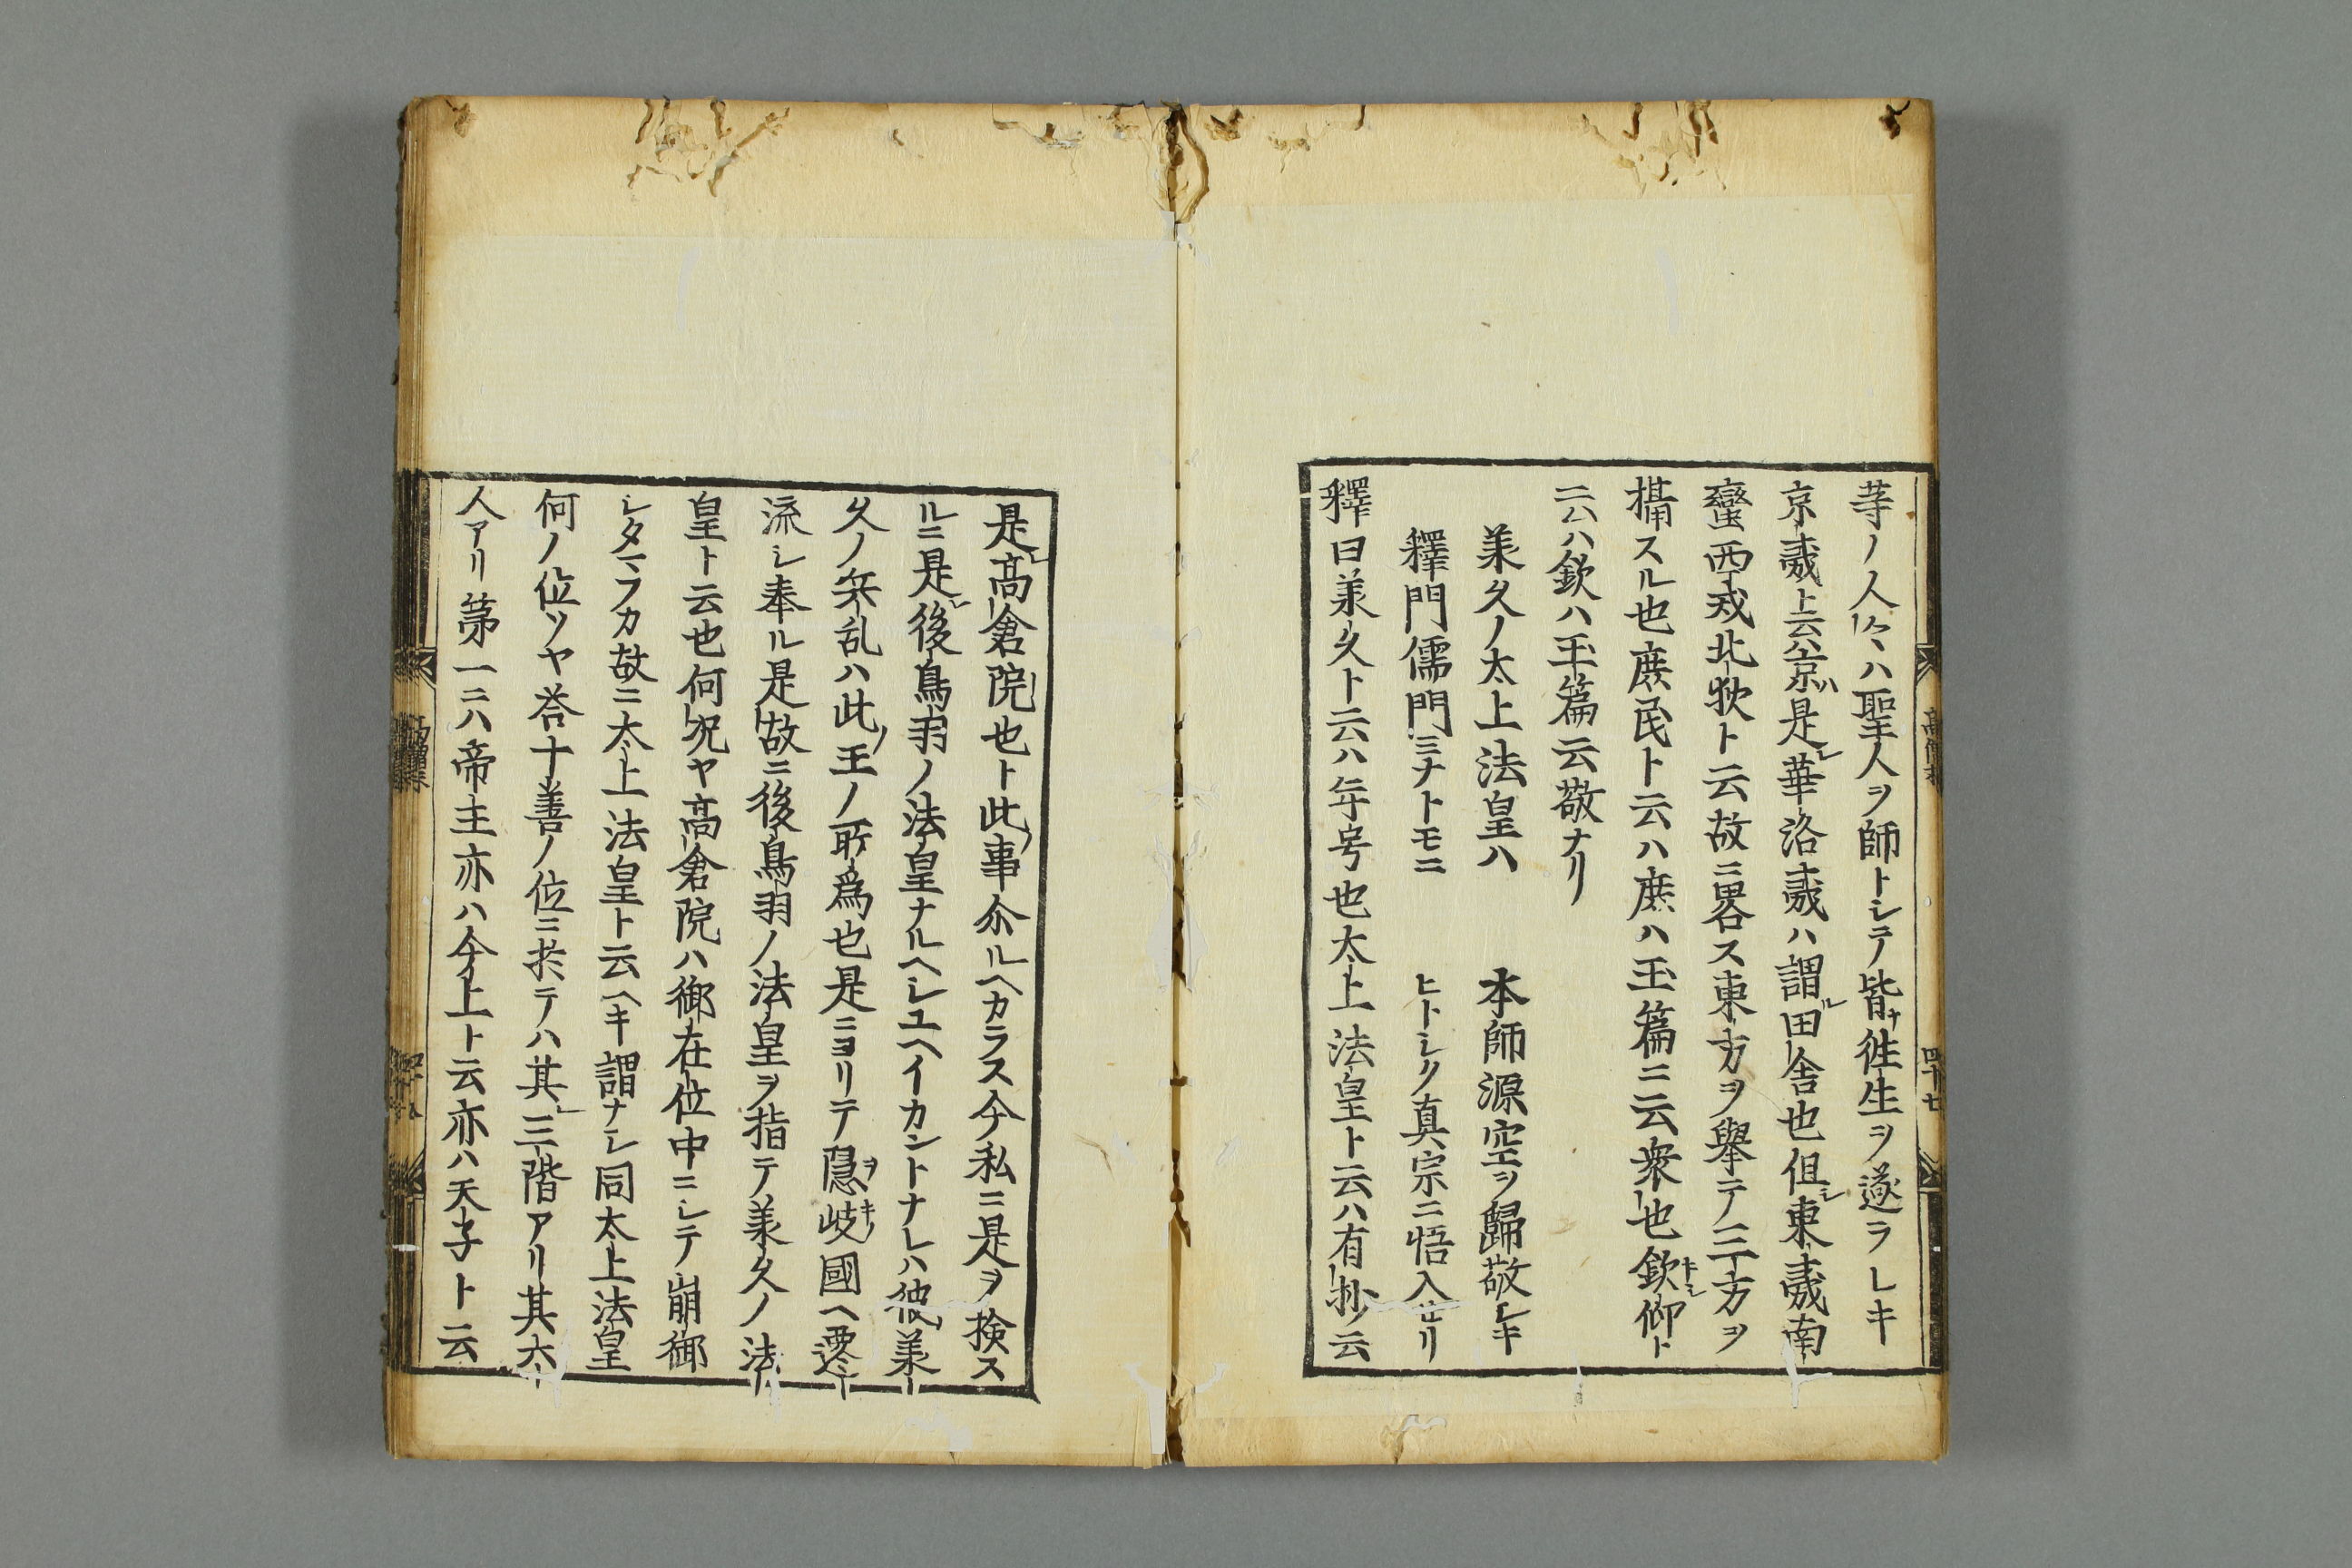 等ノ人々ハ聖人ヲ師トシテ皆ナ徃生ヲ遂ラレキ
京夷ト云ハ京ハ是レ華洛夷ハ謂ル田舎也但シ東夷南
蠻西戎北狄ト云故ニ畧ス東方ヲ擧テ三方ヲ
攝スル也庶民ト云ハ庶ハ玉篇ニ云衆也欽キン仰ト
云ハ欽ハ玉篇云敬ナリ
美久ノ太上法皇ハ　本師源空ヲ歸敬シキ
釋門儒門ミナトモニ　ヒトシク真宗ニ悟入セリ
釋曰美久ト云ハ年号也太上法皇ト云ハ有抄云
高僧
四十七
是レ髙倉院也ト此ノ事尒ルヘカラス今私ニ是ヲ検ス
ルニ是レ後鳥羽ノ法皇ナルヘシユヘイカントナレハ彼ノ美
久ノ兵乱ハ此ノ王ノ所爲也是ニヨリテ隠ヲ岐キノ國ヘ遷
流シ奉ル是故ニ後鳥羽ノ法皇ヲ指テ美久ノ法
皇ト云也何況ヤ髙倉院ハ御在位中ニシテ崩御
シタマフカ故ニ太上法皇ト云ヘキ謂ナシ同太上法皇
何ノ位ソヤ答十善ノ位ニ於テハ其レ三階アリ其六
人アリ第一ニハ帝主亦ハ今上ト云亦ハ天子ト云